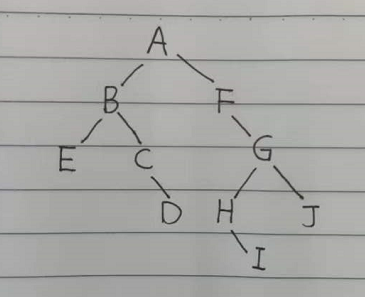 A
B F
E C G
D H J
I